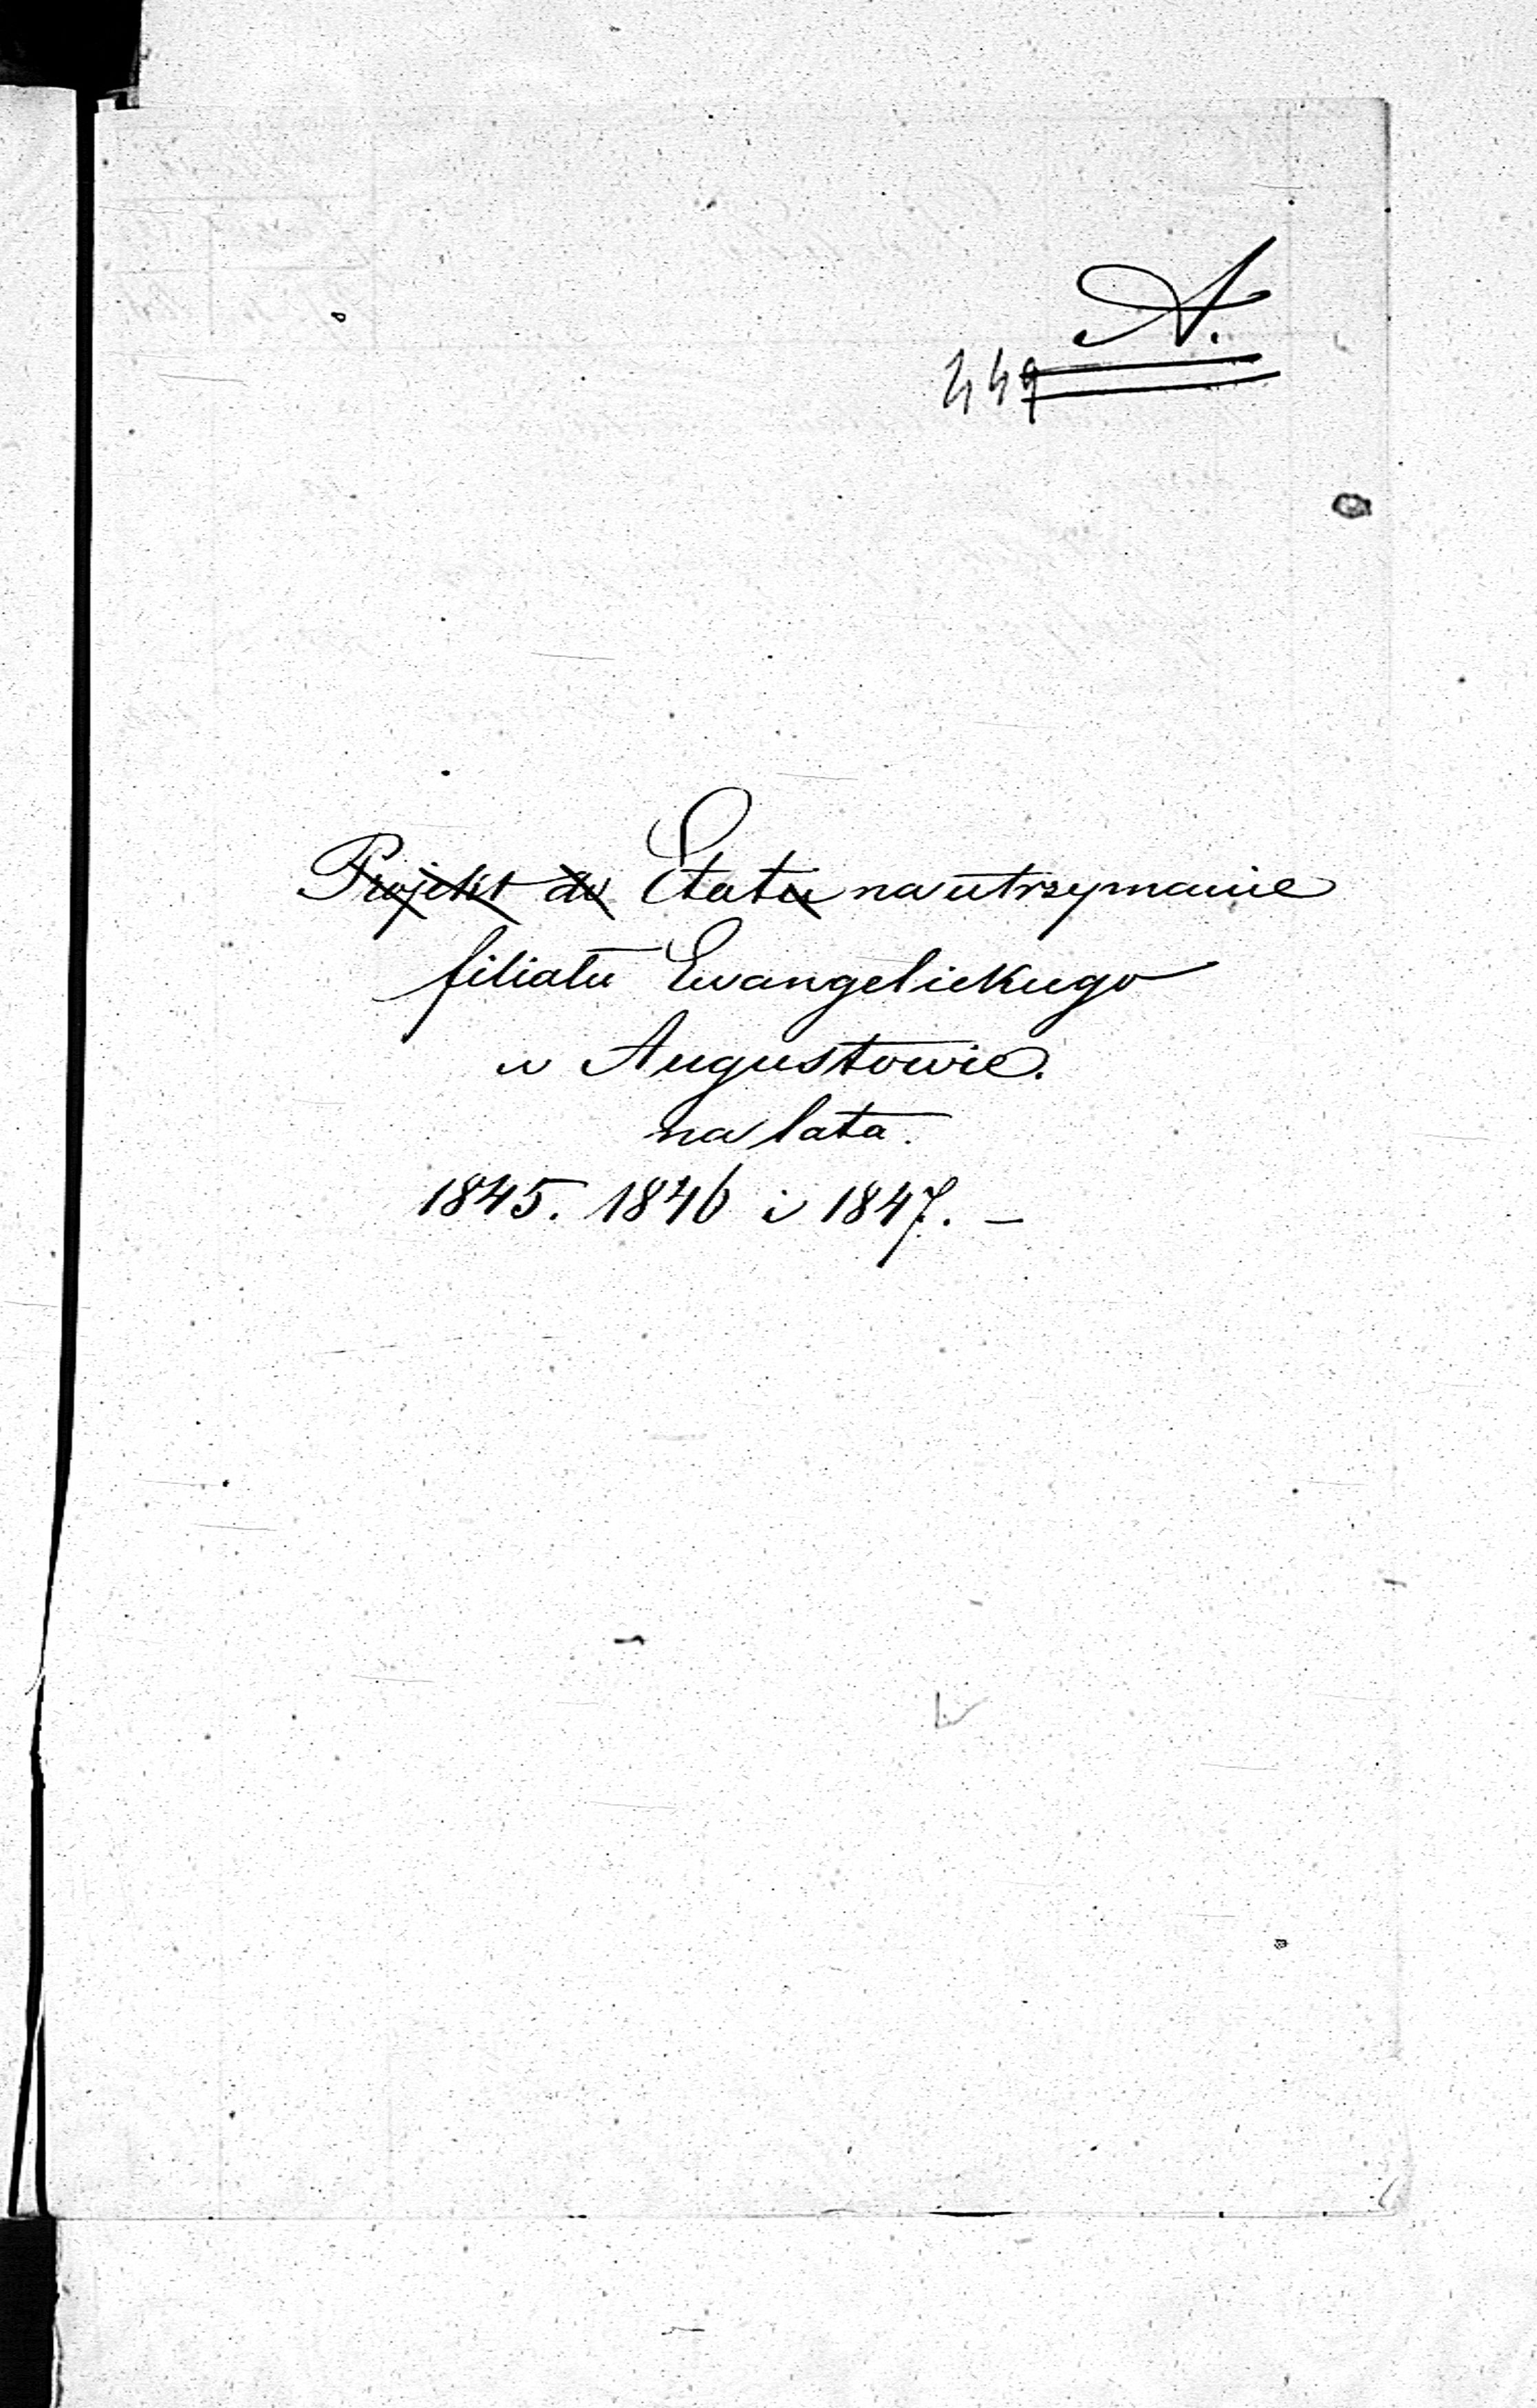 A.
449
Projekt do Etatu na utrzymanie
filiału Ewangelickiego
w Augustowie.
na lata.
1845. 1846 i 1847. –